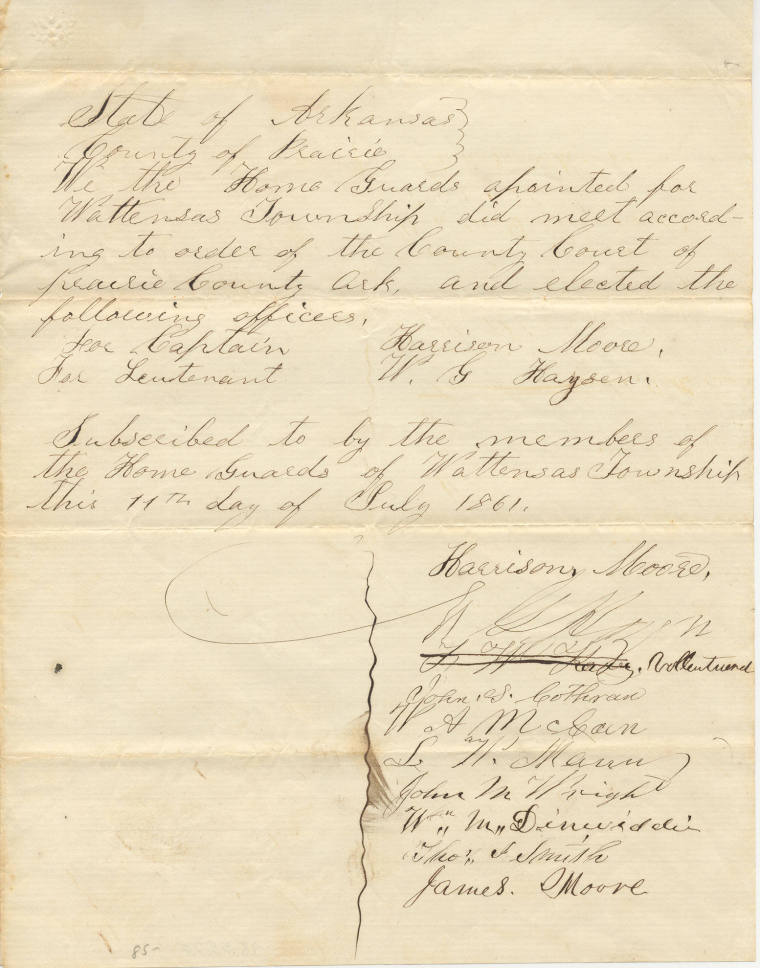 State of Arkansas }
County of Prairie }
We the Home Guards apointed for
Wattensas Township did meet accord-
ing to order of the County Court of
Prairie County Ark, and elected the
following officers,
For Captain Harrison Moore.
For Leutenant W. G Haysen.
Subscribed to by the members of
the Home Guards of Wattensas Township
this 11th day of July 1861.
Harrison Moore,
W G
John. S. Cothran
W A McCain
L. W. Mann
John M Wright
W" M" Dinwiddie
Thos, J Smith
James. Moore
85-